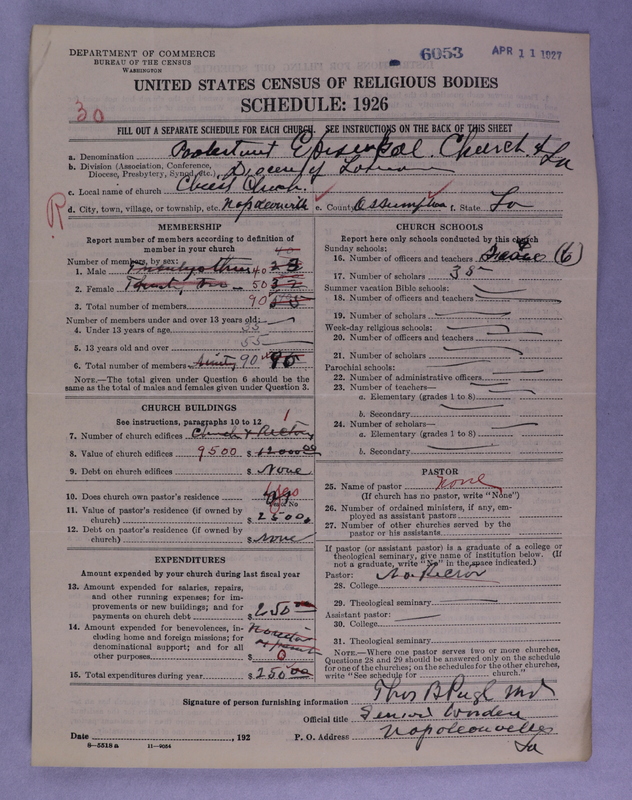 DEPARTMENT OF COMMERCE
BUREAU OF THE CENSUS
WASHINGTON
6053
APR 11 1927
UNITED STATES CENSUS OF RELIGIOUS BODIES
SCHEDULE: 1926
30
FILL OUT A SEPARATE SCHEDULE FOR EACH CHURCH. SEE INSTRUCTIONS ON THE BACK OF THIS SHEET
a. Denomination Episcopal Church
b. Division (Association, Conference,
Diocese, Presbytery, Synod, etc.) Diocese of
La
c. Local name of church Christ Church
d. City, town, village, or township, etc. Napoleonville e. County Assumption f. State La
R
MEMBERSHIP
Report number of members according to definition of
member in your church
Number of members, by sex: 40
1. Male 40
2. Female 50
3. Total number of members 90
Number of members under and over 13 years old:
4. Under 13 years of age 35
5. 13 years old and over 55
6. Total number of members 90
NOTE.—The total given under Question 6 should be the
same as the total of males and females given under Question 3.
CHURCH BUILDINGS
See instructions, paragraphs 10 to 12
7. Number of church edifices Church & Rectory 1
8. Value of church edifices 9500 $ 12000 00
9. Debt on church edifices $ None
10. Does church own pastor's residence Yes
Yes or No
11. Value of pastor's residence (if owned by
church) $ 2500
12. Debt on pastor's residence (if owned by
church) $ None
EXPENDITURES
Amount expended by church during last fiscal year
13. Amount expended for salaries, repairs,
and other running expenses; for im-
provements or new buildings; and for
payments on church debt $ 250
14. Amount expended for benevolences, in-
cluding home and foreign missions; for
denominational support; and for all
other purposes $ 0
15. Total expenditures during year $ 250 00
CHURCH SCHOOLS
Report here only schools conducted by this church
Sunday schools:
16. Number of officers and teachers (6)
17. Number of scholars 35
Summer vacation Bible schools:
18. Number of officers and teachers
19. Number of scholars
Week-day religious schools:
20. Number of officers and teachers
21. Number of scholars
Parochial schools:
22. Number of administrative officers
23. Number of teachers—
a. Elementary (grades 1 to 8)
b. Secondary
24. Number of scholars—
a. Elementary (grades 1 to 8)
b. Secondary
PASTOR
25. Name of pastor None
(If church has no pastor, write "None")
26. Number of ordained ministers, if any, em-
ployed as assistant pastors
27. Number of other churches served by the
pastor or his assistants
If pastor (or assistant pastor) is a graduate of a college or
theological seminary, give name of institution below. (If
not a graduate, write "No" in the space indicated.)
Pastor: No Rector
28. College
29. Theological seminary
Assistant pastor:
30. College
31. Theological seminary
NOTE.—Where one pastor serves two or more churches,
Questions 28 and 29 should be answered only on the schedule
for one of the churches; on the schedules for the other churches,
write "See schedule for church."
Signature of person furnishing information Thos B Pugh Md
Official title Senior Warden
Date , 192 P. O. Address Napoleonville
La
8—5518 a 11—9054